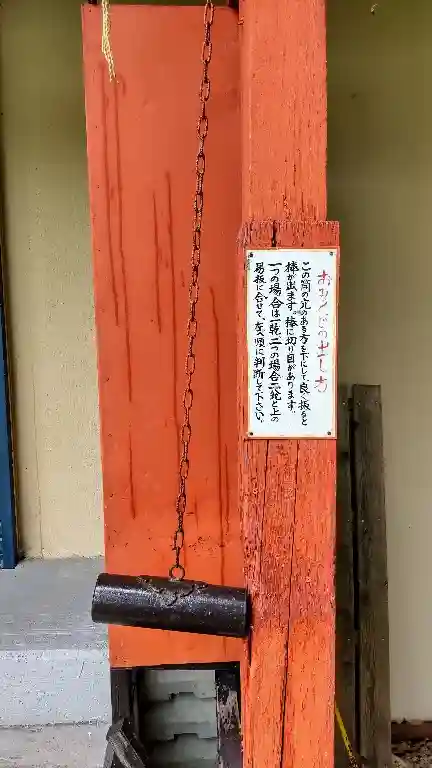 おみくじの出し方
この筒の穴のあき方を下にして、良く振ると
棒が出ます。棒に切り目があります。
一つの場合は一乾、二つの場合二兌と上の
易板に合せて、左へ順に判断して下さい。